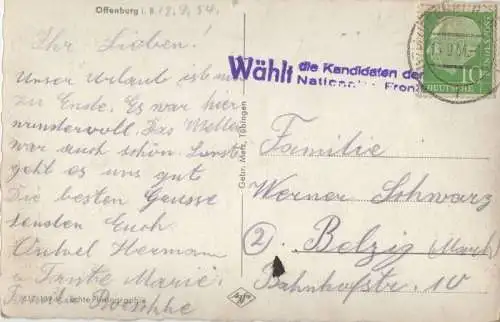 Offenburg i. B. 12. 9. 54.
Ihr Lieben!
Unser Urlaub ist nun
zu Ende. Es war hier
wundervoll. Das Wetter
war auch schön. Sonst
geht es uns gut
Die besten Grüsse
senden Euch
Onkel Hermann
u. Tante Marie.
Familie
Echte Photographie
Gebr. Metz, Tübingen
Wählt die Kandidaten der
Nationalen Front
10
DEUTSCHE
BUNDESPOST
Familie
Werner Schwarz
2 Belzig (Mark)
Bahnhofstr. 10
Agfa